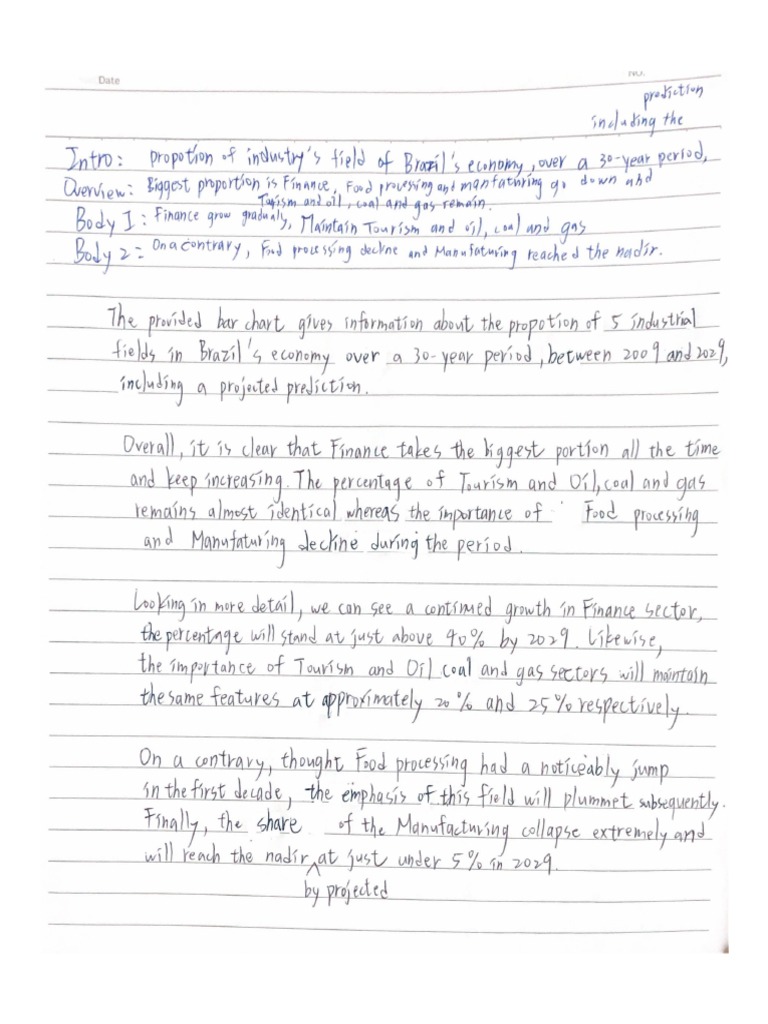 Date
NO.
prediction
including the
Intro: propotion of industry's field of Brazil's economy, over a 30-year period,
Overview: Biggest proportion is Finance, Food processing and manfaturing go down and
Tourism and oil, coal and gas remain.
Body 1: Finance grow gradually, Maintain Tourism and oil, coal and gas
Body 2: On a contrary, Food processing decline and Manufaturing reached the nadir.
The provided bar chart gives information about the propotion of 5 industrial
fields in Brazil's economy over a 30-year period, between 2009 and 2029,
including a projected prediction.
Overall, it is clear that Finance takes the biggest portion all the time
and keep increasing. The percentage of Tourism and Oil, coal and gas
remains almost identical whereas the importance of Food processing
and Manufaturing decline during the period.
Looking in more detail, we can see a continued growth in Finance sector,
the percentage will stand at just above 40% by 2029. Likewise,
the importance of Tourism and Oil coal and gas sectors will maintain
the same features at approximately 20% and 25% respectively.
On a contrary, thought Food processing had a noticeably jump
in the first decade, the emphasis of this field will plummet subsequently.
Finally, the share of the Manufacturing collapse extremely and
will reach the nadir at just under 5% in 2029.
by projected